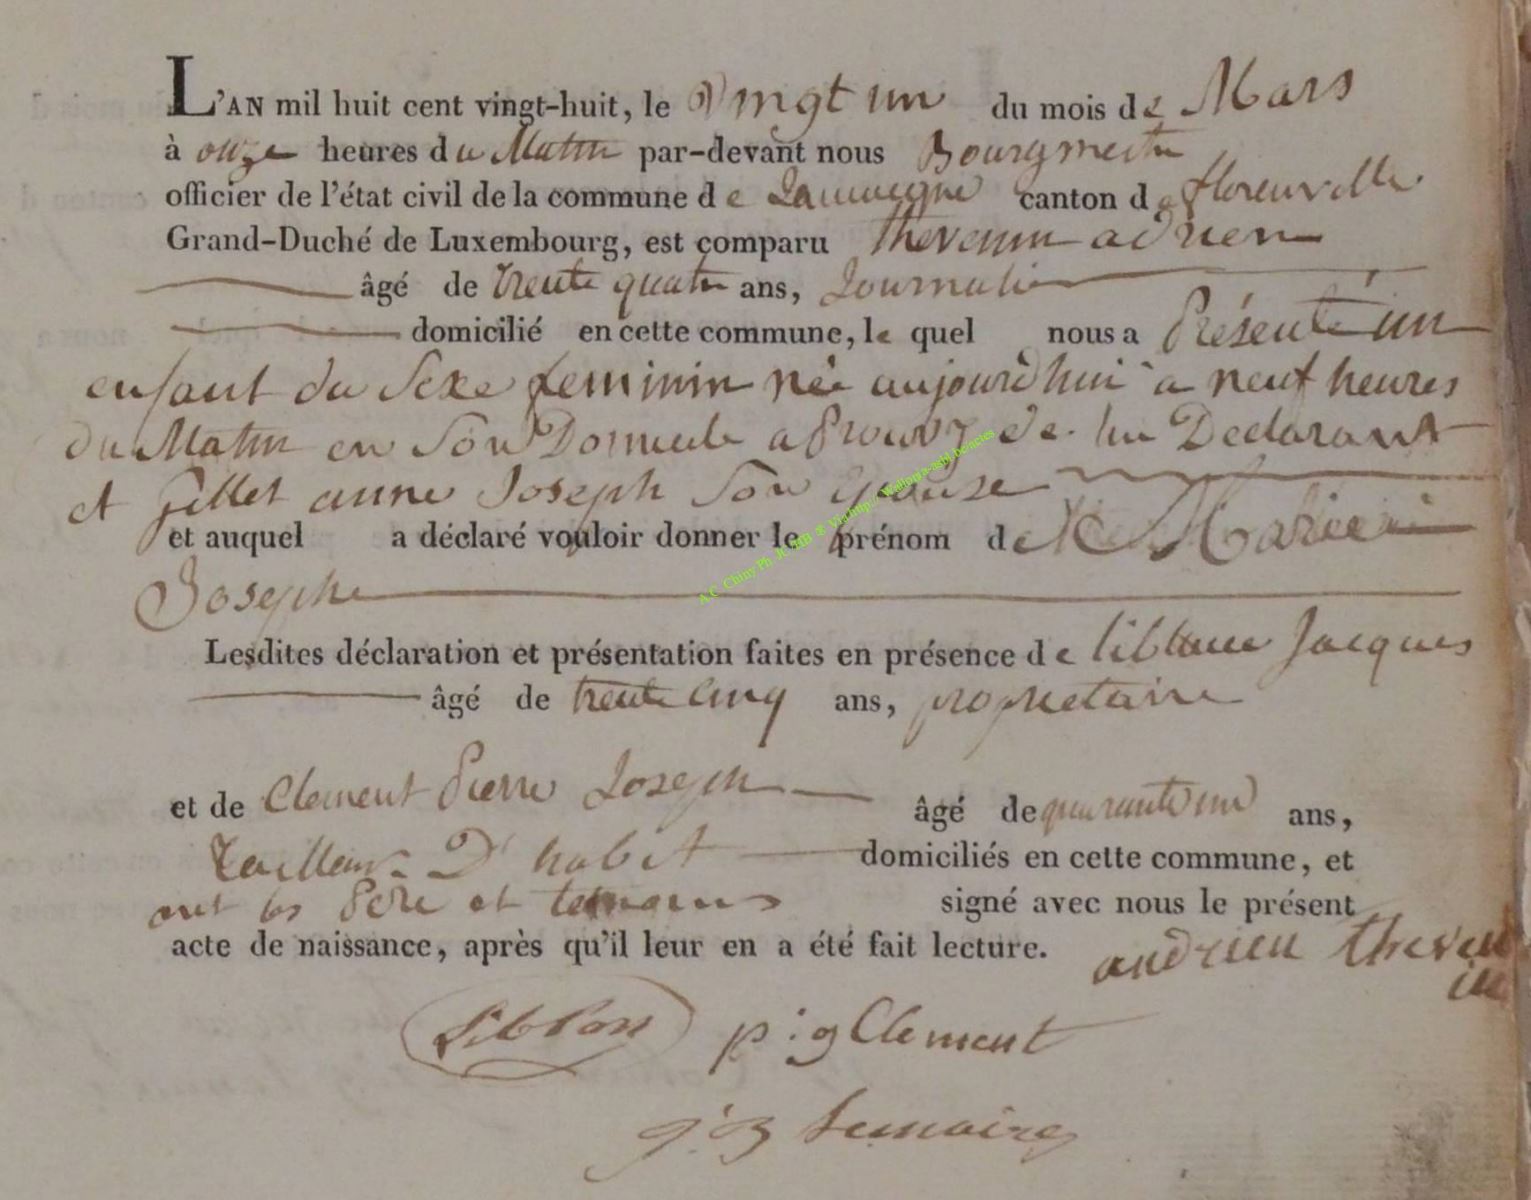 L'AN mil huit cent vingt-huit, le vingt un du mois de Mars
à onze heures du Matin par-devant nous Bourgmestre
officier de l'état civil de la commune de canton de florenville
Grand-Duché de Luxembourg, est comparu thevenin adrien
âgé de trente quatre ans, Journalie
domicilié en cette commune, le quel nous a Présenté un
enfant du Sexe feminin née aujourd'hui a neuf heures
du Matin en Son Domicile a Prouvy de lui Declarant
et Gillet anne Joseph Son Epouse
et auquel a déclaré vouloir donner le prénom de Marie
Josephe
Lesdites déclaration et présentation faites en présence de Jacques
âgé de trente cinq ans, proprietaire
et de Clement Pierre Joseph âgé de quarante un ans,
tailleur D'habit domiciliés en cette commune, et
ont les Pere et temoins signé avec nous le présent
acte de naissance, après qu'il leur en a été fait lecture. andrien theven
in
Liblan p:j Clement
Lemaire
A.C. Chiny Ph. JCMB ® Via http://Wallonia-asbl.be/actes